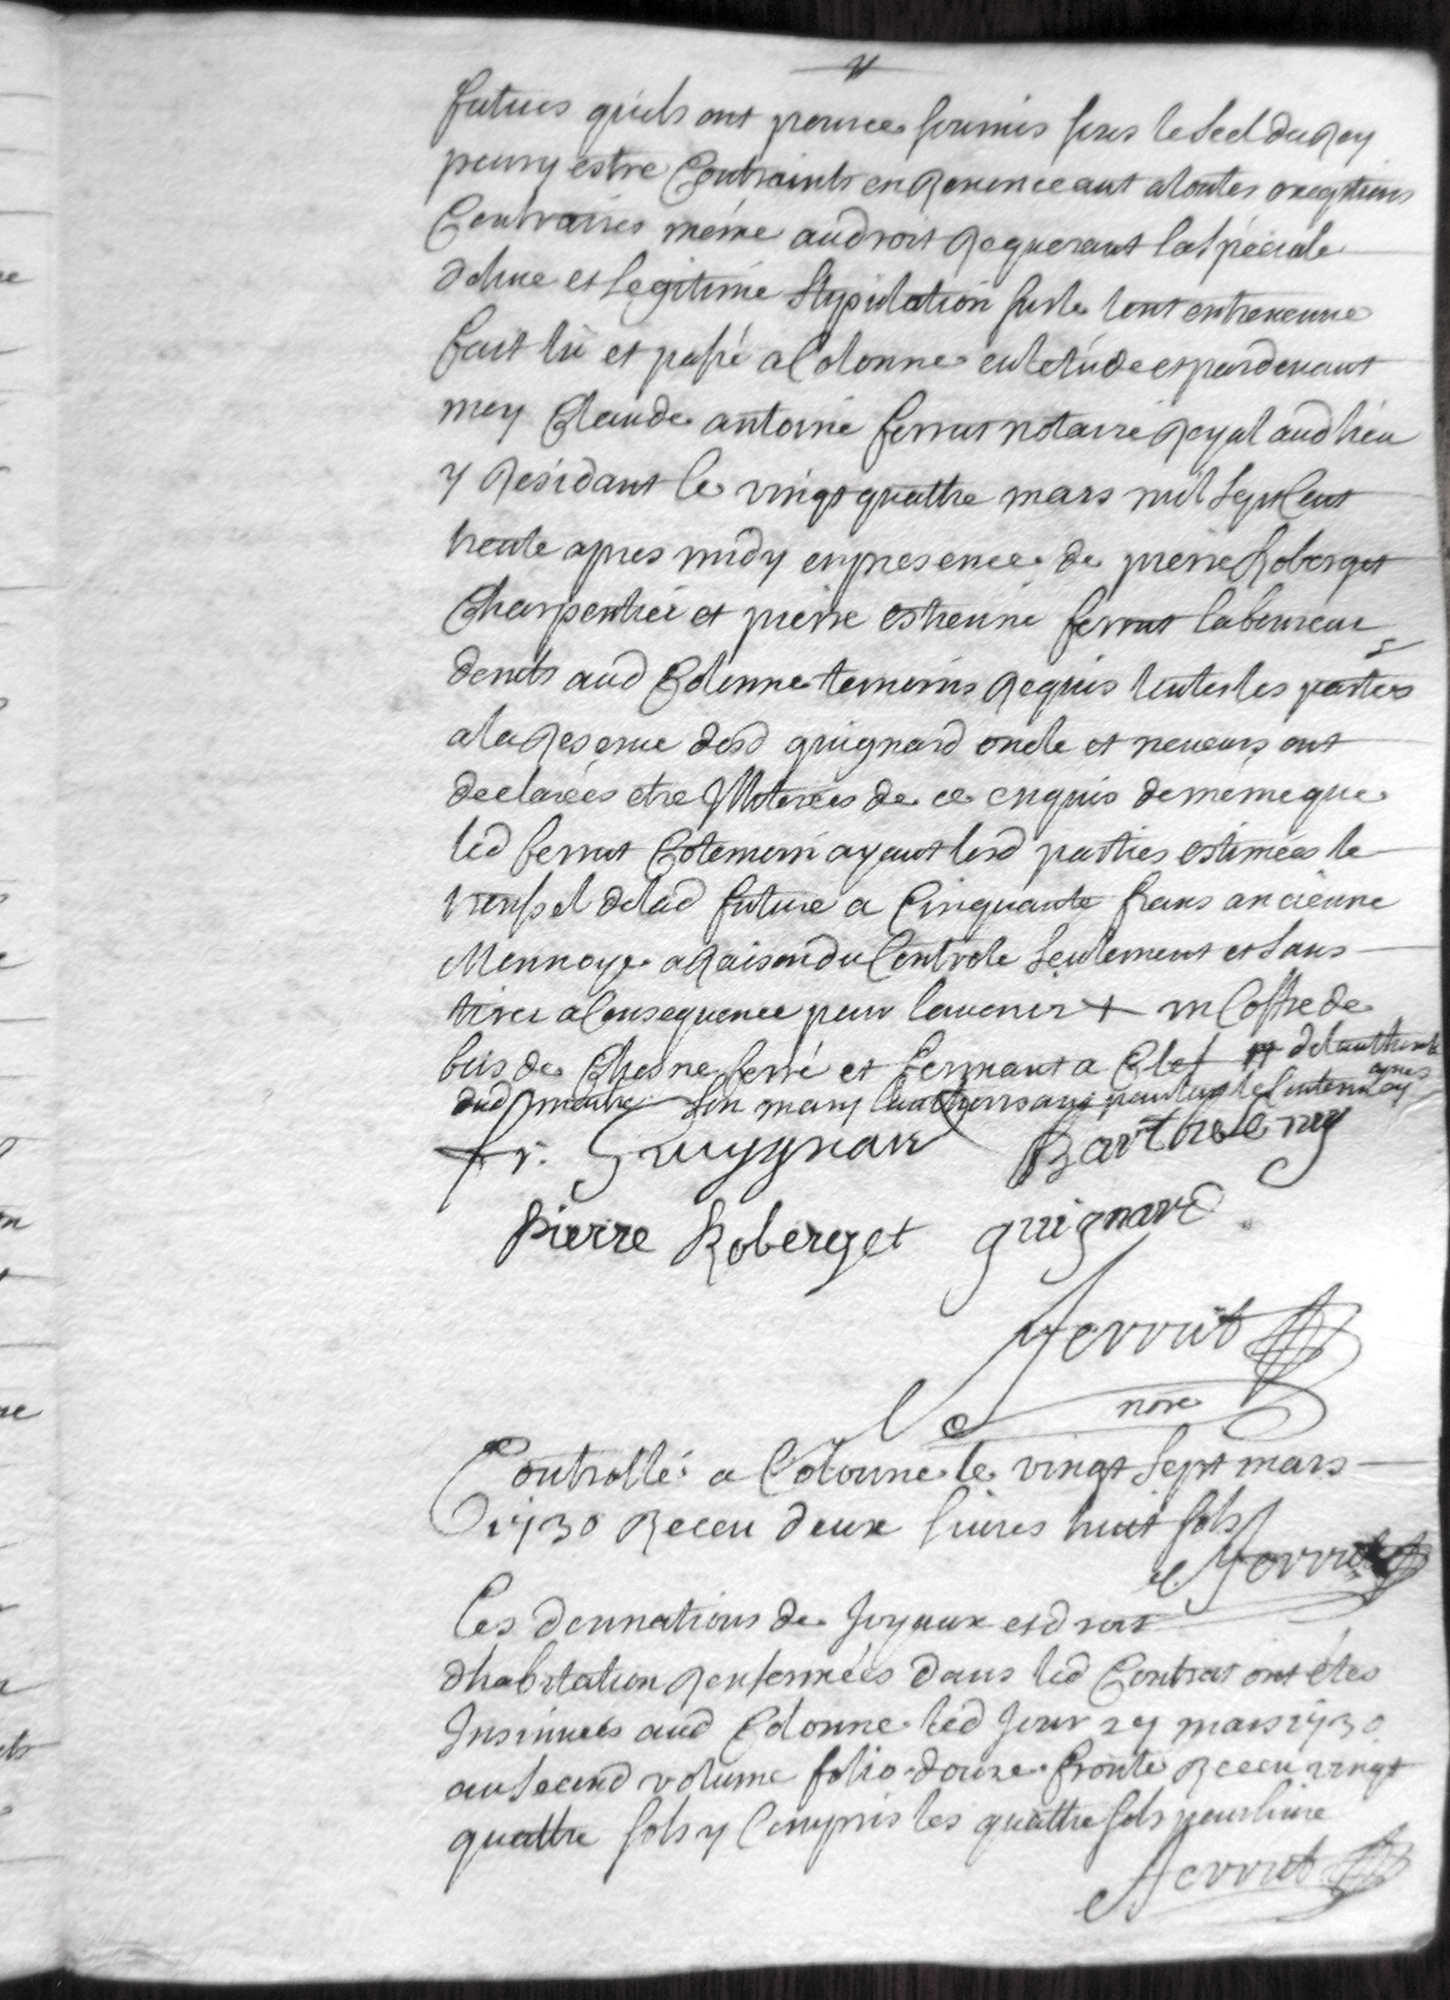 futurs qu'ils ont pource soumis sous le seel du Roy
pour y estre Contraints en Renonceant a toutes exceptions
Contraires même au droit Requerant la spéciale
dehue et legitime stipulation sur le tout entrevenue
fait lû et passé a Colonne en letúde et pardevant
moy Claude antoine ferrut notaire Royal aud lieu
y Résidant le vingt quattre mars mil sept Cent
trente apres midy en presence de pierre Roberget
Charpentier et pierre estienne ferrut laboureur
demts aud Colonne temoins Requis toutes les parties
a la Reserve desd guignard oncle et neveurs ont
declarées etre Illiterées de ce enquis de même que
led ferrut Cotemoin ayant lesd parties estimées le
troussel de lad future a Cinquante frans ancienne
Monnoye a Raison du Controle seulement et sans
tirer a Consequence pour lavenir + un Coffre de
bois de Chesne ferré et fermant a Clef # de lauthorité
dud son mary
fr. Guygnard Barthelemy
Pierre Roberget guignard
ferrut
nore
Controllé a Colonne le vingt sept mars
1730 Receu deux livres huit sols
ferrut
Les donnations de Joyaux et droit
dhabitation Renfermées dans led Contrat ont étés
Insinuées aud Colonne led Jour 27 mars 1730
au second volume folio douze Receu vingt
quattre sols y Compris les quattre sols pour livre
ferrut